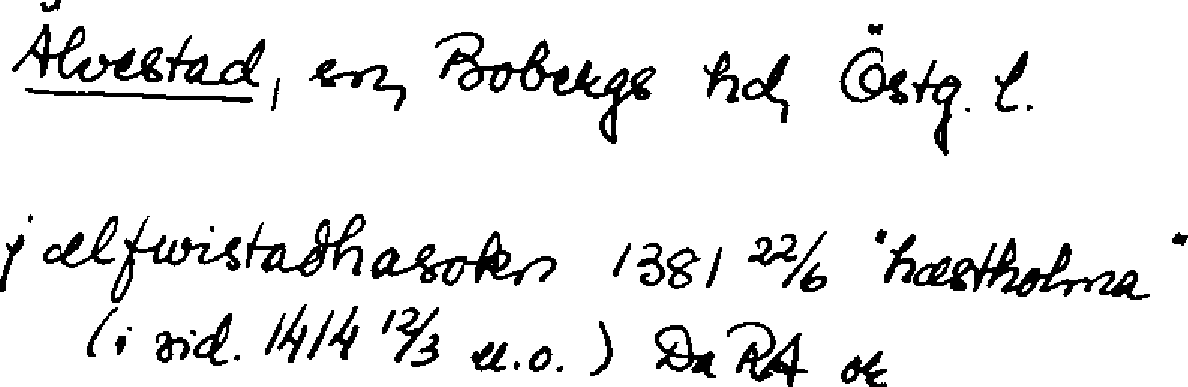 Älvestad, sn, Bobergs hd, Östg. l.
j ælfwistadhasokn 1381 22/6 "hæstholma"
(i vid. 1414 12/3 u.o.) Da RA or